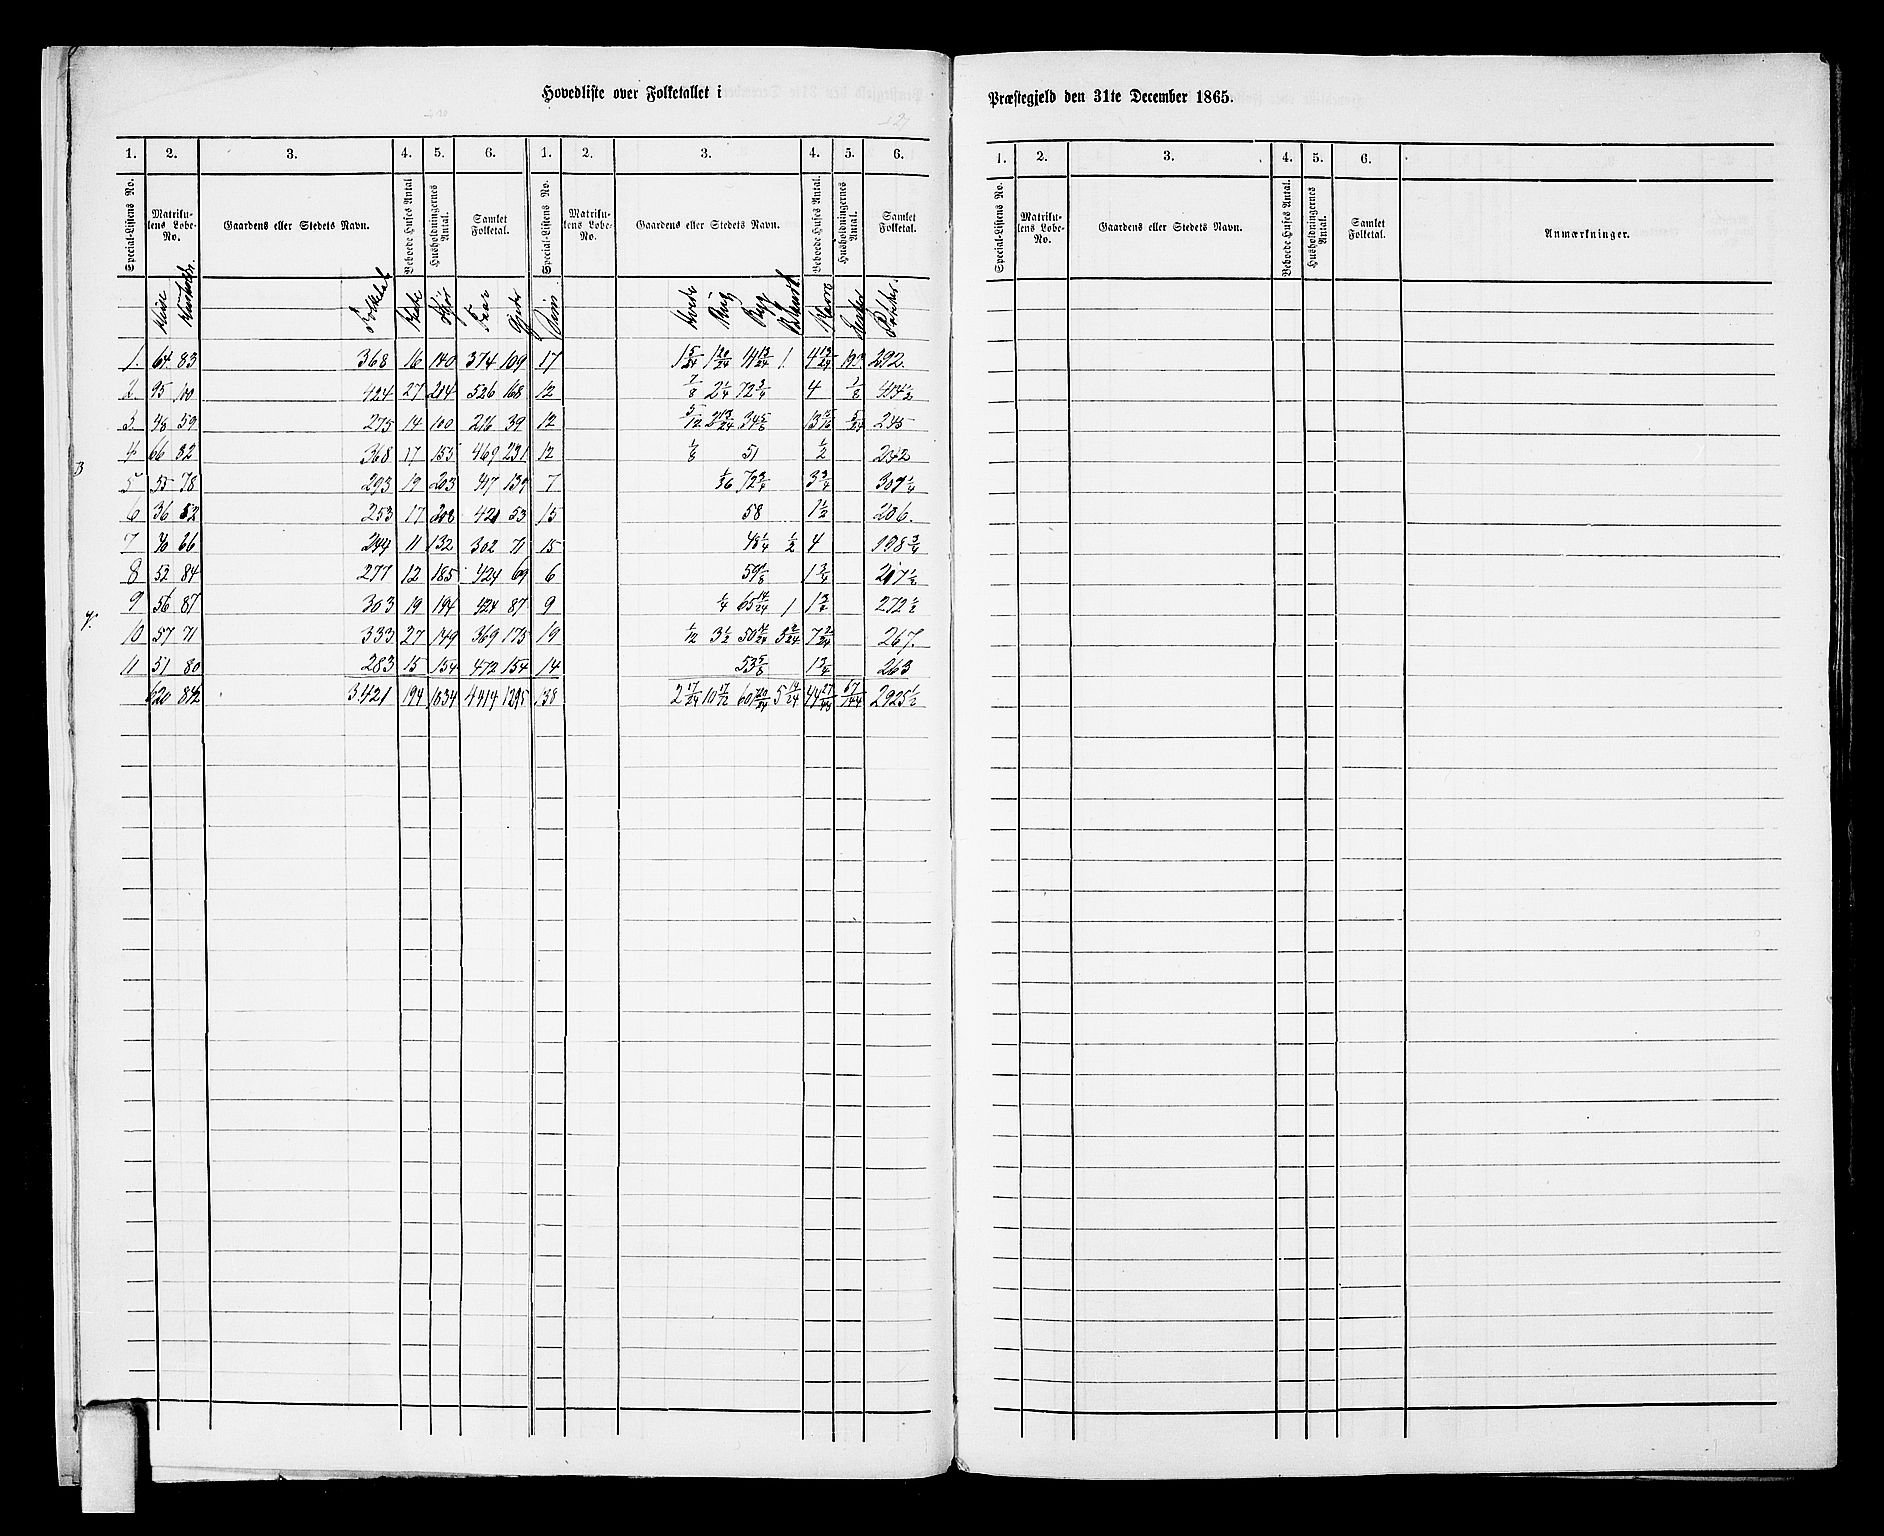 Hovedliste over Folketallet i
Præstegjeld den 31te December 1865.
1. 2. 3. 4. 5. 6. 1. 2. 3. 4. 5. 6.
Special-Listens No. Matrikulens Løbe-No. Gaardens eller Stedets Navn. Beboede Huses Antal Husholdningernes Antal. Samlet Folketal. Special-Listens No. Matrikulens Løbe-No. Gaardens eller Stedets Navn. Beboede Huses Antal. Husholdningernes Antal. Samlet Folketal.
Huse Hushold. Folketal Heste Faar Geder Sviin Hvede Rug Byg Havre Erter Poteter.
1. 64 83 368 16 140 374 109 17 1 5/24 1 20/24 1. 292.
2 95 424 27 214 526 168 12 7/8 2 1/4 72 3/4 4 1/8 414 1/2
3 48 59 275 14 100 216 39 12 5/12 5/24 245
4 66 52 368 17 155 469 231 12 1/8 51 1/2 242
5 55 78 293 19 203 417 139 7 1/16 72 3/4 3 3/4 307 1/4
6 36 52 253 17 208 421 53 15 58 1 1/2 206.
7 40 66 244 11 132 302 71 15 48 1/4 1/2 4 198 3/4
8 52 84 277 12 185 424 69 6 1 3/4 217 1/2
9 56 87 303 19 194 424 87 9 1/4 65 14/24 1 272 1/2
10 57 71 333 27 149 369 175 19 1/12 3 1/2 267.
11 51 80 283 15 154 472 154 14 53 5/8 1 3/4 263
620 842 3.421 194 1834 4414 1295 138 2 17/24 5 14/24 2925 1/2
1. 2. 3. 4. 5. 6.
Special-Listens No. Matrikulens Løbe-No. Gaardens eller Stedets Navn. Beboede Huses Antal. Husholdningernes Antal. Samlet Folketal. Anmærkninger.